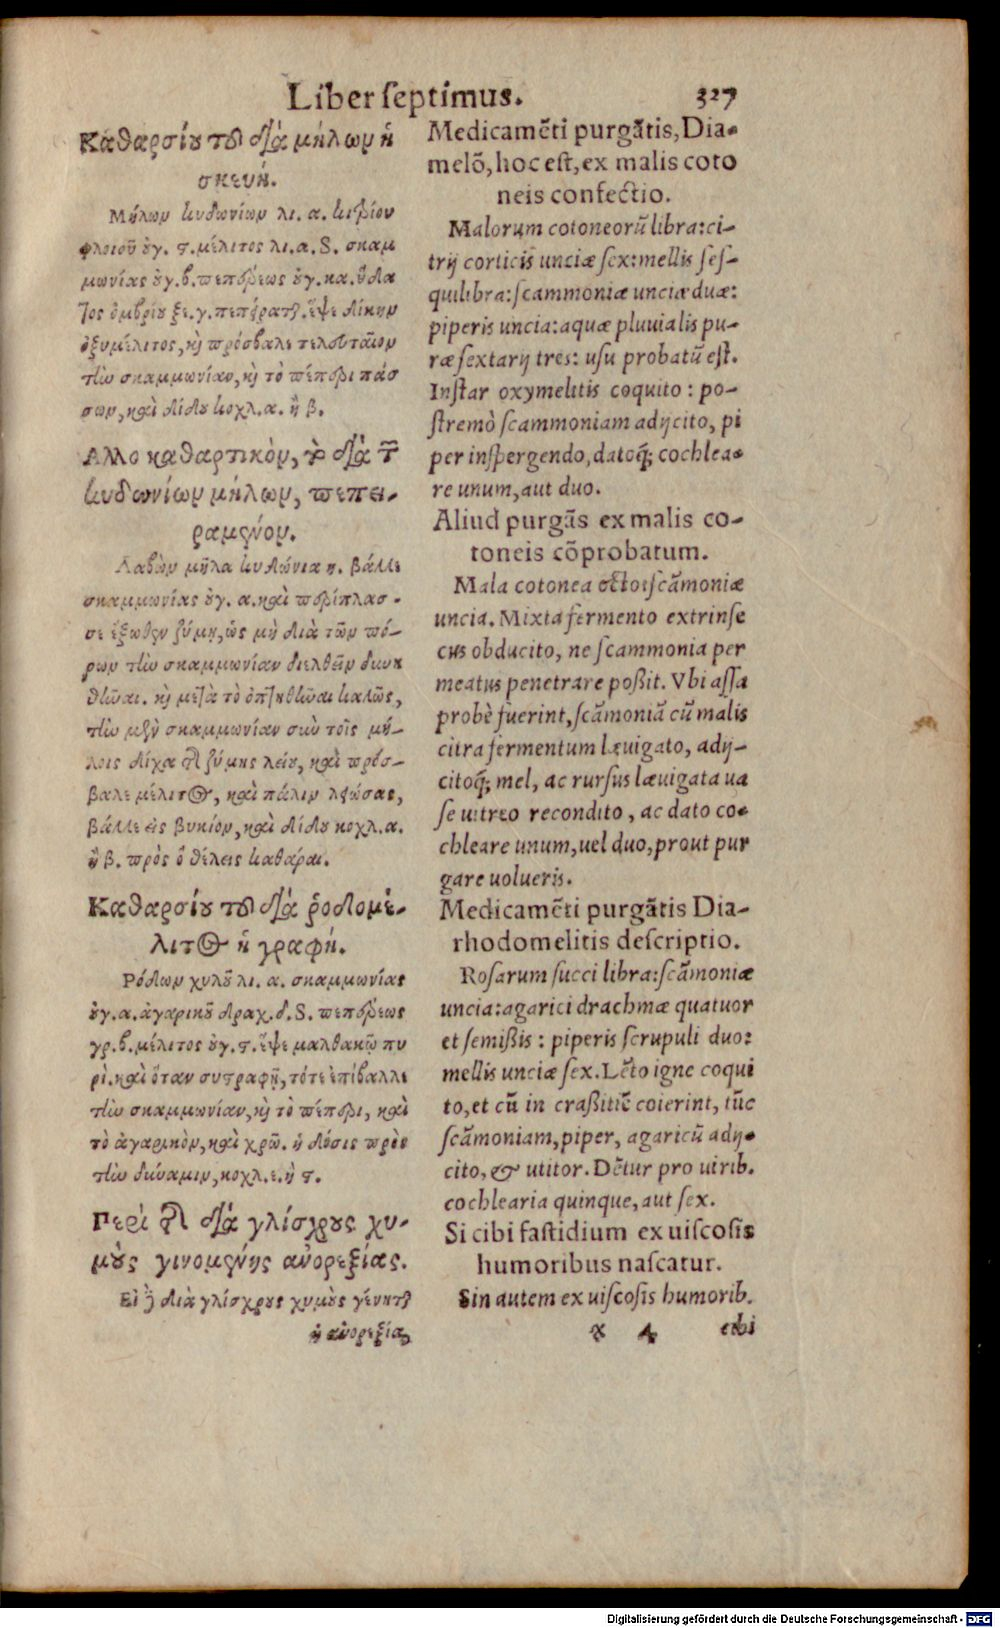 Liber septimus. 327
Καθαρσίου τοῦ διὰ μήλων ἡ
σκευή.
Μήλων κυδωνίων λι. α. κιτρίου
φλοιοῦ ὀγ. ϛ. μέλιτος λι. α. S. σκαμ
μωνίας ὀγ. β. πεπέρεως ὀγ. κα. ὕδα
τος ὀμβρίου ξε. γ. πεπείραται. ἕψε δίκην
ὀξυμέλιτος, καὶ πρόσβαλε τελευταῖον
τὴν σκαμμωνίαν, καὶ τὸ πέπερι πάσ
σων, καὶ δίδου κοχλ. α. ἢ β.
Αλλο καθαρτικὸν, τὸ διὰ τῶν
κυδωνίων μήλων, πεπει-
ραμένον.
Λαβὼν μῆλα κυδώνια η. βάλλε
σκαμμωνίας ὀγ. α. καὶ περίπλασ-
σε ἔξωθεν ζύμῃ, ὡς μὴ διὰ τῶν πό-
ρων τὴν σκαμμωνίαν διελθεῖν δυνη
θῆναι. καὶ μετὰ τὸ ὀπτηθῆναι καλῶς,
τὴν μὲν σκαμμωνίαν σὺν τοῖς μή-
λοις δίχα τῆς ζύμης λείου, καὶ πρόσ-
βαλε μέλιτος, καὶ πάλιν λειώσας,
βάλλε εἰς βυκίον, καὶ δίδου κοχλ. α.
ἢ β. πρὸς ὃ θέλεις καθάραι.
Καθαρσίου τοῦ διὰ ῥοδομέ-
λιτος ἡ γραφή.
Ρόδων χυλοῦ λι. α. σκαμμωνίας
ὀγ. α. ἀγαρικοῦ δραχ. δ. S. πεπέρεως
γρ. β. μέλιτος ὀγ. ϛ. ἕψε μαλθακῷ πυ
ρί. καὶ ὅταν συτραφῇ, τότε ἐπίβαλλε
τὴν σκαμμωνίαν, καὶ τὸ πέπερι, καὶ
τὸ ἀγαρικὸν, καὶ χρῶ. ἡ δόσις πρὸς
τὴν δύναμιν, κοχλ. ε. ἢ ϛ.
Περὶ τῆς διὰ γλίσχρους χυ-
μοὺς γινομένης ἀνορεξίας.
Εἰ δὲ διὰ γλίσχρους χυμοὺς γένηται
ἡ ἀνορεξία,
Medicamēti purgātis, Dia-
melō, hoc est, ex malis coto
neis confectio.
Malorum cotoneorū libra: ci-
trij corticis unciæ sex: mellis ses-
quilibra: scammoniæ unciæ duæ:
piperis uncia: aquæ pluuialis pu-
ræ sextarij tres: usu probatū est.
Instar oxymelitis coquito: po-
stremò scammoniam adijcito, pi
per inspergendo, datoq́; cochlea-
re unum, aut duo.
Aliud purgās ex malis co-
toneis cōprobatum.
Mala cotonea octo: scāmoniæ
uncia. Mixta fermento extrinse
cus obducito, ne scammonia per
meatus penetrare poßit. Vbi assa
probè fuerint, scāmoniā cū malis
citra fermentum læuigato, adij-
citoq́; mel, ac rursus læuigata ua
se uitreo recondito, ac dato co-
chleare unum, uel duo, prout pur
gare uolueris.
Medicamēti purgātis Dia-
rhodomelitis descriptio.
Rosarum succi libra: scāmoniæ
uncia: agarici drachmæ quatuor
et semißis: piperis scrupuli duo:
mellis unciæ sex. Lēto igne coqui
to, et cū in craßitiē coierint, tūc
scāmoniam, piper, agaricū adij-
cito, & utitor. Dētur pro uirib.
cochlearia quinque, aut sex.
Si cibi fastidium ex uiscosis
humoribus nascatur.
Sin autem ex uiscosis humorib.
x 4 cibi
Digitalisierung gefördert durch die Deutsche Forschungsgemeinschaft - DFG